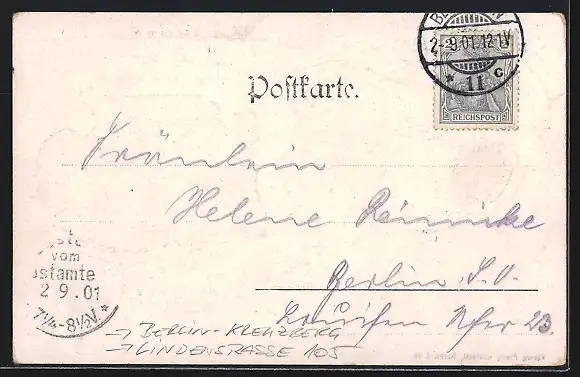 BERLIN
2-9.01.12-1V
* 11 c
REICHSPOST
Postkarte.
Fräulein
Helene Reinicke
Berlin S.O.
Louisen Ufer 23.
vom
ostamte
2 9.01
7¼-8½V. *
→ BERLIN-KREUZBERG
→ LINDENSTRASSE 105